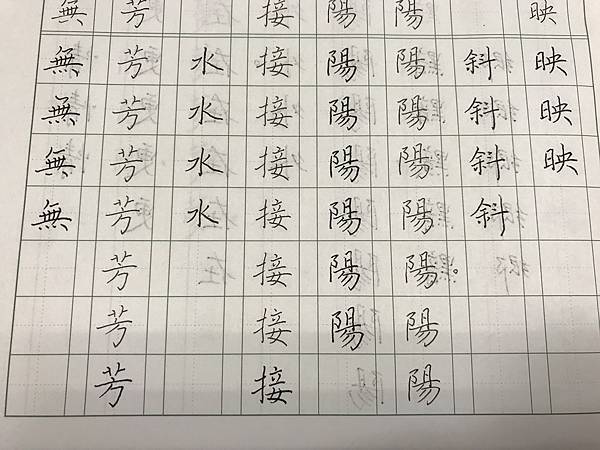 映映映映
斜斜斜斜
陽陽陽陽陽陽。陽陽
陽陽陽陽陽陽陽
接接接接接接接接
水水水水
芳芳芳芳芳芳芳芳
無無無無無